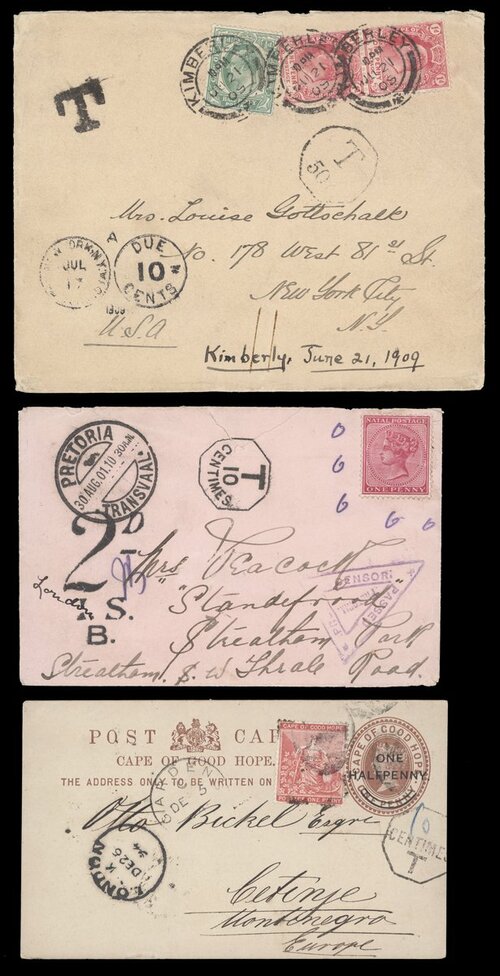 KIMBERLEY
KIMBERLEY
KIMBERLEY
T
T
50
Mrs. Louise Gottschalk
No. 178 West 81st St.
New York City
N.Y.
U.S.A
A
JUL
1909
DUE
10
CENTS
N
Kimberly, June 21, 1909
PRETORIA
30.AUG.01.10 30AM
TRANSVAAL
T
10
CENTIMES
NATAL POSTAGE
ONE PENNY
6
6
6
6
6
2D
London
I.S.
B.
Mrs Peacock
"Standefrood"
Streatham Park
Streatham. S.W Thrale Road.
CENSOR
PASSED
POST CAR
CAPE OF GOOD HOPE.
THE ADDRESS ONLY TO BE WRITTEN ON
CAPE OF GOOD HOPE
CAPE OF GOOD HOPE
ONE
HALFPENNY
ONE PENNY
DE 5
Otto Bickel Esqre
Cetinje
Montenegro
Europe
LONDON
K
DE 26
94
10
CENTIMES
T